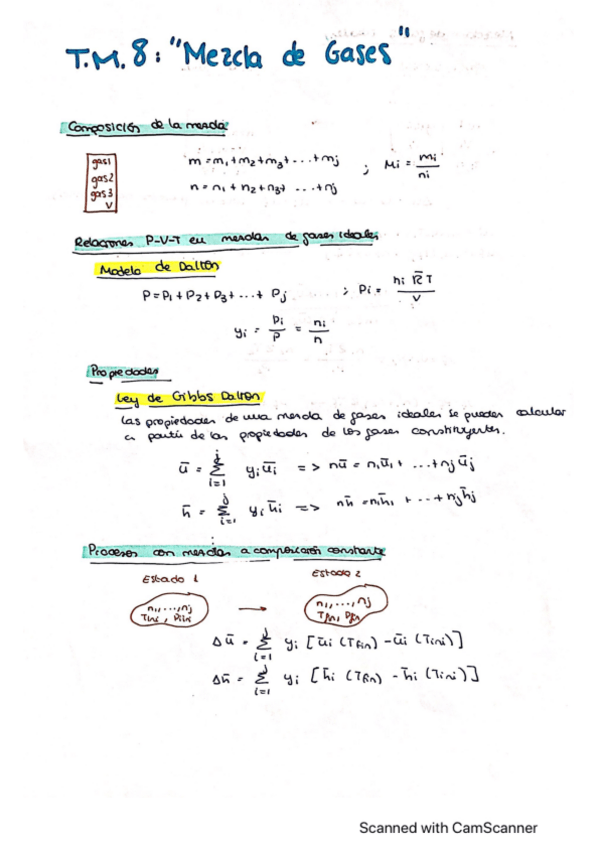 T.M.8: "Mezcla de Gases"
Composición de la mezcla
gas1
gas2
gas3
V
m = m₁+m₂+m₃+...+mj ; Mi = mi/ni
n = n₁ + n₂ + n₃+ ...+nj
Relaciones P-V-T en mezclas de gases ideales
Modelo de Dalton
P = P₁ + P₂ + P₃ + ...+ Pj ; Pi = ni R̄ T / V
yi = Pi/P = ni/n
Propiedades
Ley de Gibbs Dalton
Las propiedades de una mezcla de gases ideales se pueden calcular
a partir de las propiedades de los gases constituyentes.
ū = Σ_{i=1}^{j} yi ūi => nū = n₁ū₁ + ...+nj ūj
h̄ = Σ_{i=1}^{j} yi h̄i => nh̄ = n₁h̄₁ + ...+ nj h̄j
⋮
Procesos con mezclas a composición constante
Estado 1 Estado 2
n₁,...,nj → n₁,...,nj
Tini, Pini Tfin, Pfin
Δū = Σ_{i=1}^{j} yi [ūi (Tfin) - ūi (Tini)]
Δh̄ = Σ_{i=1}^{j} yi [h̄i (Tfin) - h̄i (Tini)]
Scanned with CamScanner